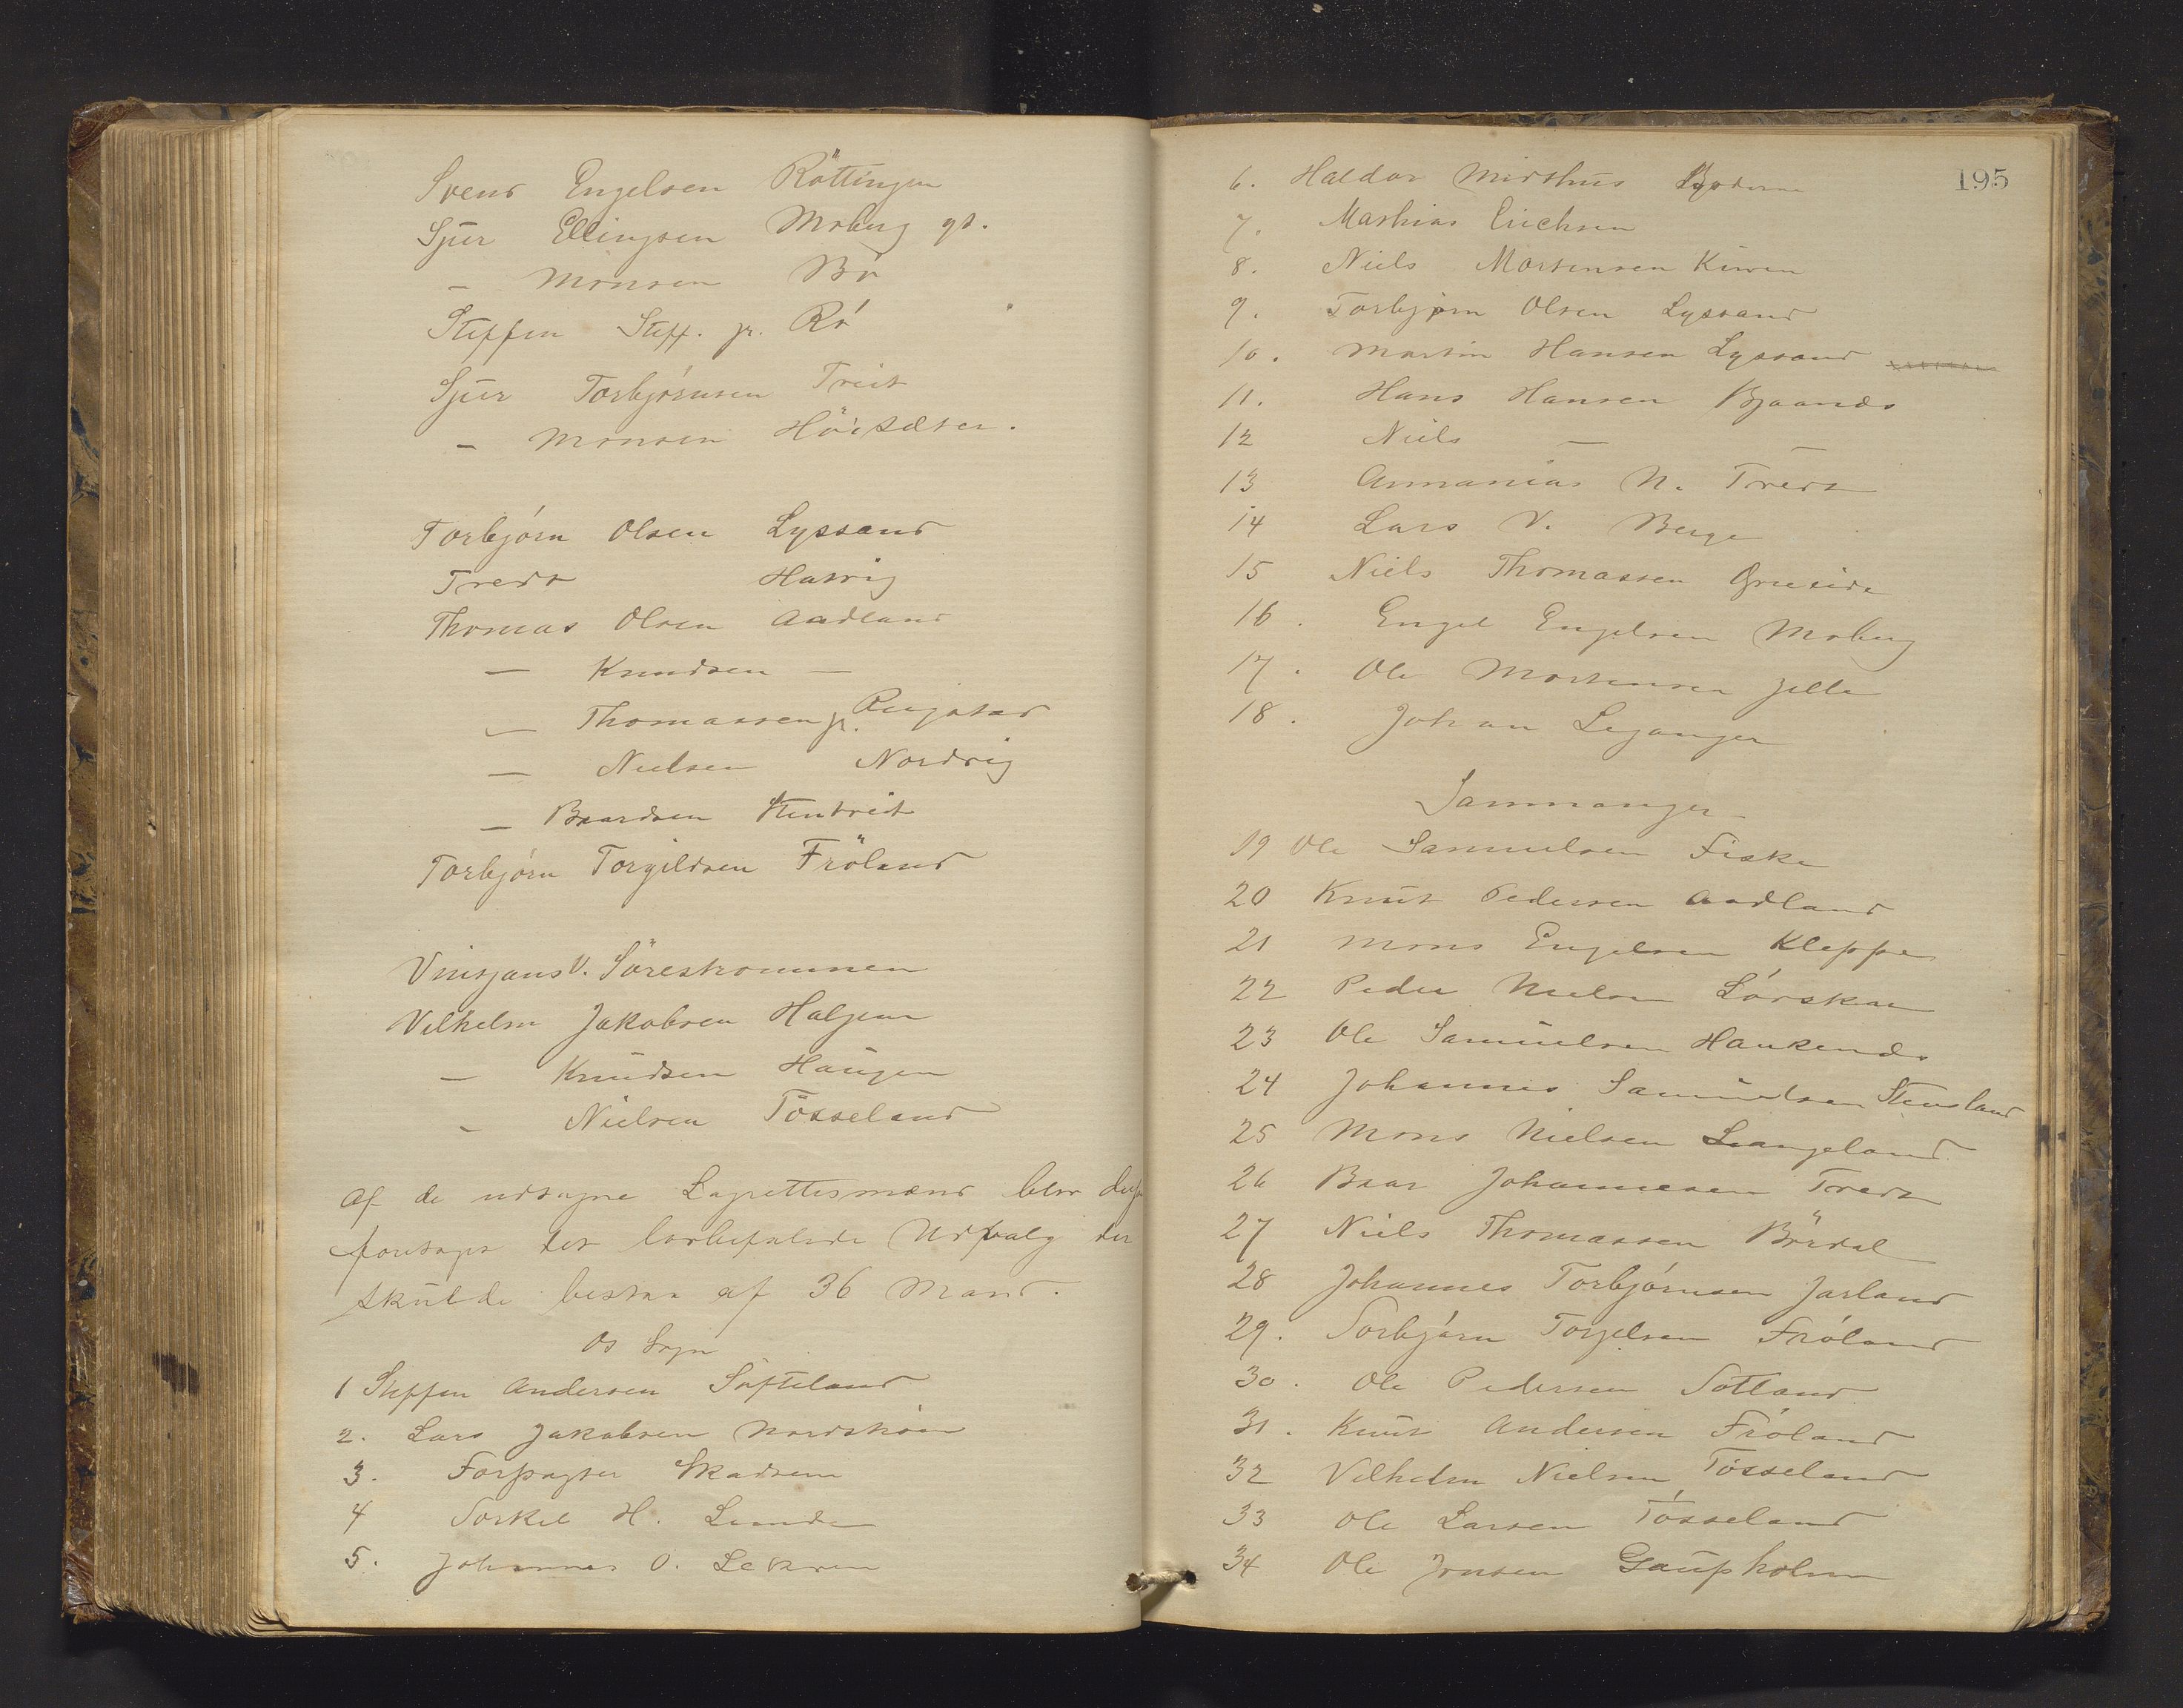 Svend Engelsen Röttingen
Sjur Ellingsen Moberg gt.
– Monsen Bø
Steffen Steff. jr. Rö
Sjur Torbjörnsen Tveit
– Monsen Höisæter.
Torbjörn Olsen Lyssand
Tvedt Hatvig
Thomas Olsen Aadland
– Knudsen –
– Thomassen jr.
– Nielsen Nordvig
– Baardsen
Torbjörn Torgildsen Fröland
Vinsjans V. Sörestrommen
Vilhelm Jakobsen Haljem
– Knudsen Haugen
– Nielsen Tösseland
Af de udtagne Lagrettesmænd blev
foretaget det lovbefalede Udvalg der
skulde bestaa af 36 Mand.
Os Sogn
1 Steffen Andersen Søfteland
2. Lars Jakobsen Nordström
3. Forpagter Skadsem
4 Torkel H. Lunde
5. Johannes O. Lekven
195
6. Haldor Midthus
7. Mathias Erichsen
8. Niels Mortensen Kuven
9. Torbjørn Olsen Lyssand
10. Martin Hansen Lyssand
11. Hans Hansen Bjaanæs
12 Niels – –
13 Annanias N. Tvedt
14 Lars V. Berge
15 Niels Thomassen Grueide
16. Engel Engelsen Moberg
17. Ole Mortensen Jelle
18. Johan Leganger
Sammanger
19 Ole Samuelsen Fiske
20 Knut Pedersen Aadland
21 Mons Engelsen Kleppe
22 Peder Nielsen Lönskar
23 Ole Samuelsen Haukenæs
24 Johannes Samuelsen Stensland
25 Mons Nielsen Langeland
26 Baar Johannesen Tvedt
27 Niels Thomassen Bördal
28 Johannes Torbjörnsen Jarland
29. Torbjörn Torgelsen Fröland
30. Ole Pedersen Sotland
31. Knut Andersen Fröland
32 Vilhelm Nielsen Tösseland
33 Ole Larsen Tösseland
34 Ole Jonsen Gaupholm